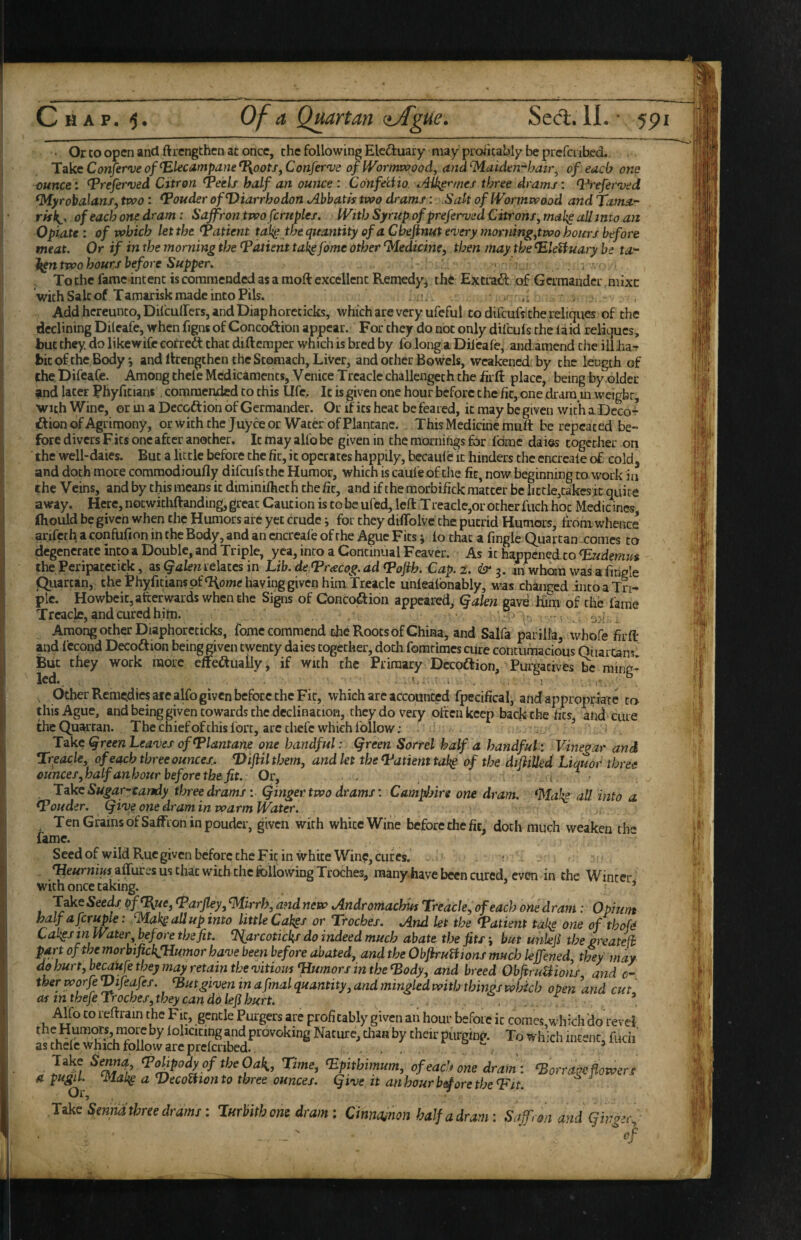 CHAP. 5. Of a Quartan Ague. Sect. II. 591
Or to open and strengthen at once, the following Electuary may profitably be prescribed.
Take Conserve of Elecampane Roots, Conserve of Wormwood, and Maiden-hair, of each one
ounce: Preserved Citron Peels half an ounce: Confectio Alkermes three drams: Preserved
Myrobalans, two: Pouder of Diarrhodon Abbatis two drams: Salt of Wormwood and Tama-
risk, of each one dram: Saffron two scruples. With Syrup of preserved Citrons, make all into an
Opiate: of which let the Patient take the quantity of a Chesnut every morning, two hours before
meat. Or if in the morning the Patient take some other Medicine, then may the Electuary be ta-
ken two hours before Supper.
To the same intent is commended as a most excellent Remedy, the Extract of Germander mixt
with Salt of Tamarisk made into Pils.
Add hereunto, Discussers, and Diaphoreticks, which are very useful to discuss the reliques of the
declining Disease, when signs of Concoction appear. For they do not only discuss the said reliques,
but they do likewise correct that distemper which is bred by so long a Disease, and amend the ill ha-
bit of the Body; and strengthen the Stomach, Liver, and other Bowels, weakened by the length of
the Disease. Among these Medicaments, Venice Treacle challengeth the first place, being by older
and later Physitians commended to this Use. It is given one hour before the fit, one dram in weight,
with Wine, or in a Decoction of Germander. Or if its heat be feared, it may be given with a Deco-
ction of Agrimony, or with the Juyce or Water of Plantane. This Medicine must be repeated be-
fore divers Fits one after another. It may also be given in the mornings for some daies together on
the well-daies. But a little before the fit, it operates happily, because it hinders the encrease of cold,
and doth more commodiously discuss the Humor, which is cause of the fit, now beginning to work in
the Veins, and by this means it diminisheth the fit, and if the morbifick matter be little, takes it quite
away. Here, notwithstanding, great Caution is to be used, lest Treacle, or other such hot Medicines,
should be given when the Humors are yet crude; for they dissolve the putrid Humors, from whence
ariseth a confusion in the Body, and an encrease of the Ague Fits; so that a single Quartan comes to
degenerate into a Double, and Triple, yea, into a Continual Feaver. As it happened to Eudemus
the Peripatetick, as Galen relates in Lib. de Præcog. ad Posth. Cap. 2. & 3. in whom was a single
Quartan, the Physitians of Rome having given him Treacle unseasonably, was changed into a Tri-
ple. Howbeit, afterwards when the Signs of Concoction appeared, Galen gave him of the same
Treacle, and cured him.
Among other Diaphoreticks, some commend the Roots of China, and Salsa parilla, whose first
and second Decoction being given twenty daies together, doth somtimes cure contumacious Quartans.
But they work more effectually, if with the Primary Decoction, Purgatives be ming-
led.
Other Remedies are also given before the Fit, which are accounted specifical, and appropriate to
this Ague, and being given towards the declination, they do very often keep back the fits, and cure
the Quartan. The chief of this sort, are these which follow:
Take Green Leaves of Plantane one handful: Green Sorrel half a handful: Vinegar and
Treacle, of each three ounces. Distil them, and let the Patient take of the distilled Liquor three
ounces, half an hour before the fit. Or,
Take Sugar-candy three drams: Ginger two drams: Camphire one dram. Make all into a
Pouder. Give one dram in warm Water.
Ten Grains of Saffron in pouder, given with white Wine before the fit, doth much weaken the
same.
Seed of wild Rue given before the Fit in white Wine, cures.
Heurnius assures us that with the following Troches, many have been cured, even in the Winter,
with once taking.
Take Seeds of Rue, Parsley, Mirrh, and new Andromachus Treacle, of each one dram: Opium
half a scruple: Make all up into little Cakes or Troches. And let the Patient take one of those
Cakes in Water, before the fit. Narcoticks do indeed much abate the fits; but unless the greatest
part of the morbifick Humor have been before abated, and the Obstructions much lessened, they may
do hurt, because they may retain the vitious Humors in the Body, and breed Obstructions, and o-
ther worse Diseases. But given in a smal quantity, and mingled with things which open and cut,
as in these Troches, they can do less hurt.
Also to restrain the Fit, gentle Purgers are profitably given an hour before it comes, which do revel
the Humors, more by soliciting and provoking Nature, than by their purging. To which intent, such
as these which follow are prescribed.
Take Senna, Polipody of the Oak, Time, Epithimum, of each one dram: Borrage flowers
a pugil. Make a Decoction to three ounces. Give it an hour before the Fit.
Or,
Take Senna three drams: Turbith one dram: Cinnamon half a dram: Saffron and Ginger,
of